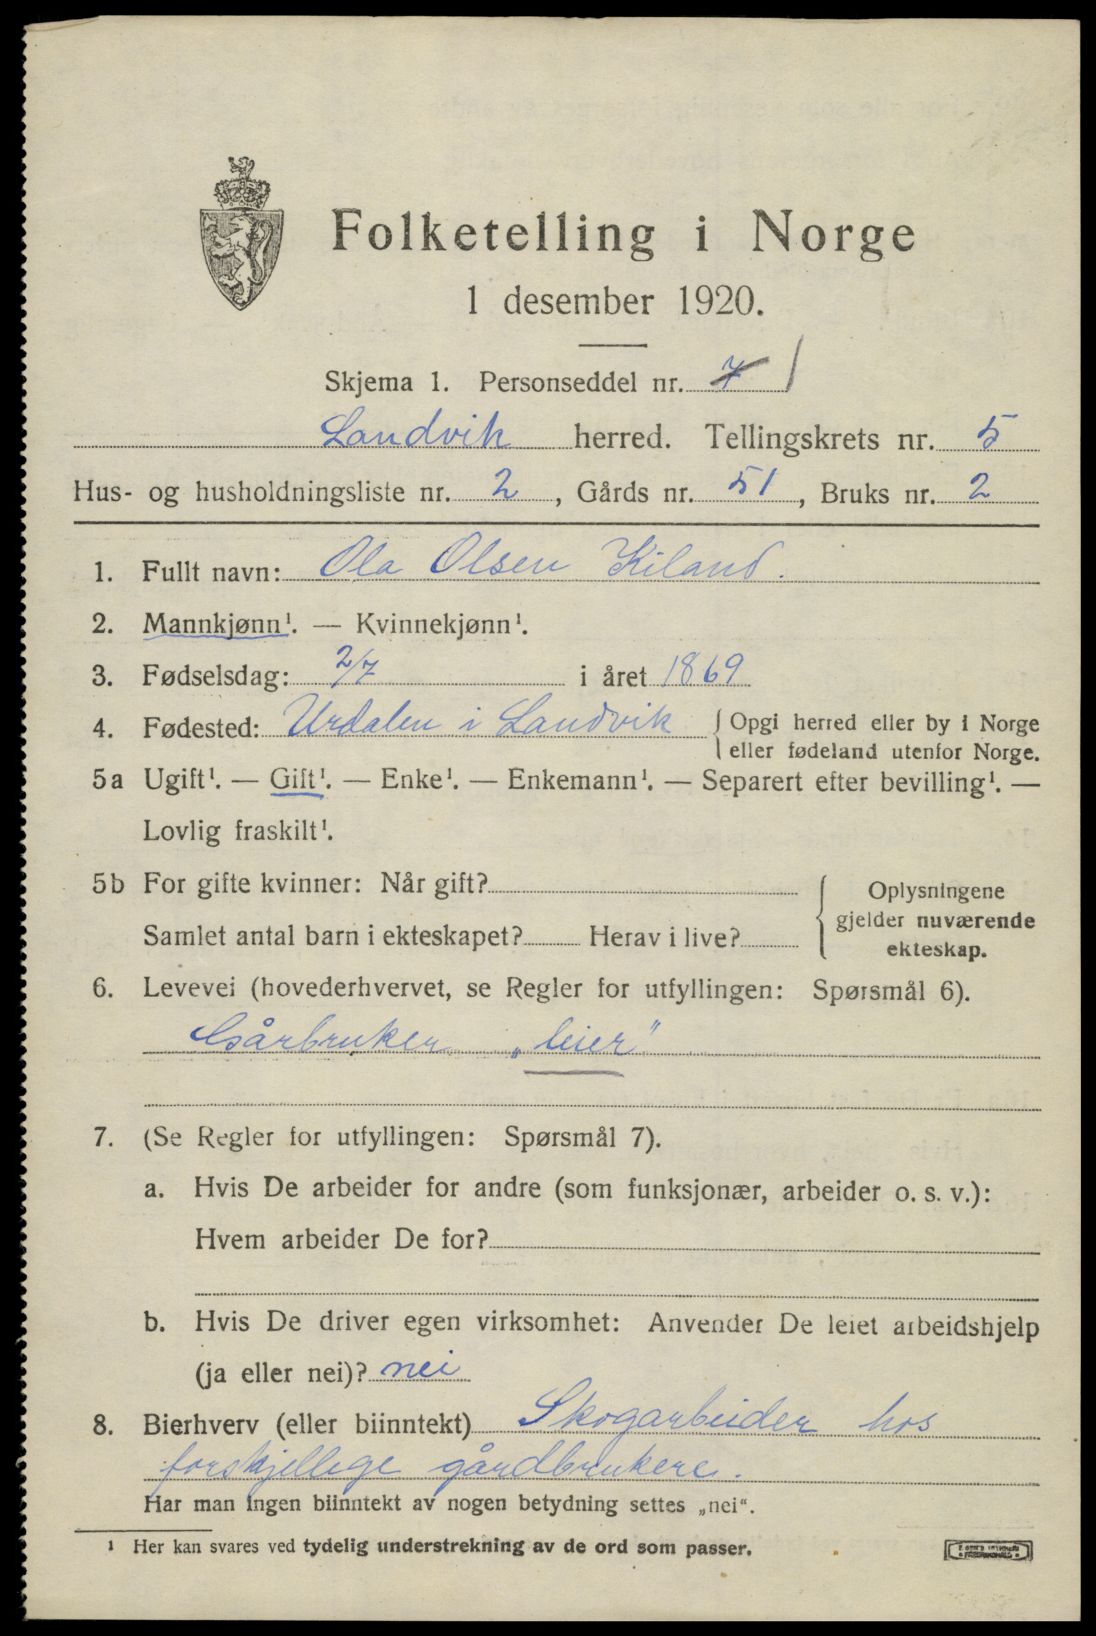 Folketelling i Norge
1 desember 1920.
Skjema 1. Personseddel nr. 7 1
Landvik herred. Tellingskrets nr. 5
Hus- og husholdningsliste nr. 2, Gårds nr. 51, Bruks nr. 2
1. Fullt navn: Ola Olsen Kiland.
2. Mannkjønn¹. — Kvinnekjønn¹.
3. Fødselsdag: 2/7 i året 1869
4. Fødested: Urdalen i Landvik { Opgi herred eller by i Norge
eller fødeland utenfor Norge.
5a Ugift¹. — Gift¹. — Enke¹. — Enkemann¹. — Separert efter bevilling¹. —
Lovlig fraskilt¹.
5b For gifte kvinner: Når gift?
Samlet antal barn i ekteskapet? Herav i live?
{ Oplysningene
gjelder nuværende
ekteskap.
6. Levevei (hovederhvervet, se Regler for utfyllingen: Spørsmål 6).
Gårbruker „leier"
7. (Se Regler for utfyllingen: Spørsmål 7).
a. Hvis De arbeider for andre (som funksjonær, arbeider o. s. v.):
Hvem arbeider De for?
b. Hvis De driver egen virksomhet: Anvender De leiet arbeidshjelp
(ja eller nei)? nei
8. Bierhverv (eller biinntekt) Skogarbeider hos
forskjellege gårdbrukere.
Har man ingen biinntekt av nogen betydning settes „nei".
¹ Her kan svares ved tydelig understrekning av de ord som passer.